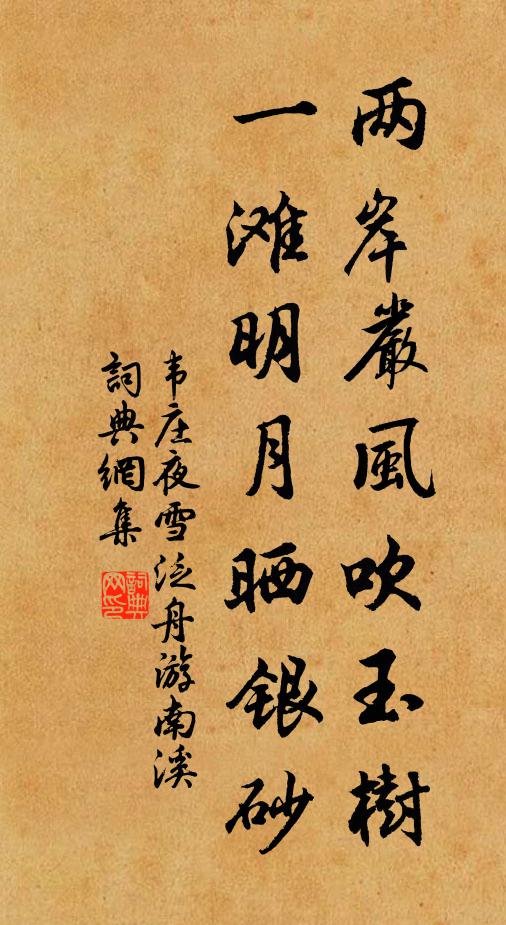 两岸嚴風吹玉樹
一滩明月晒銀砂
韦庄夜雪泛舟游南溪
詞典網集
詞典网印